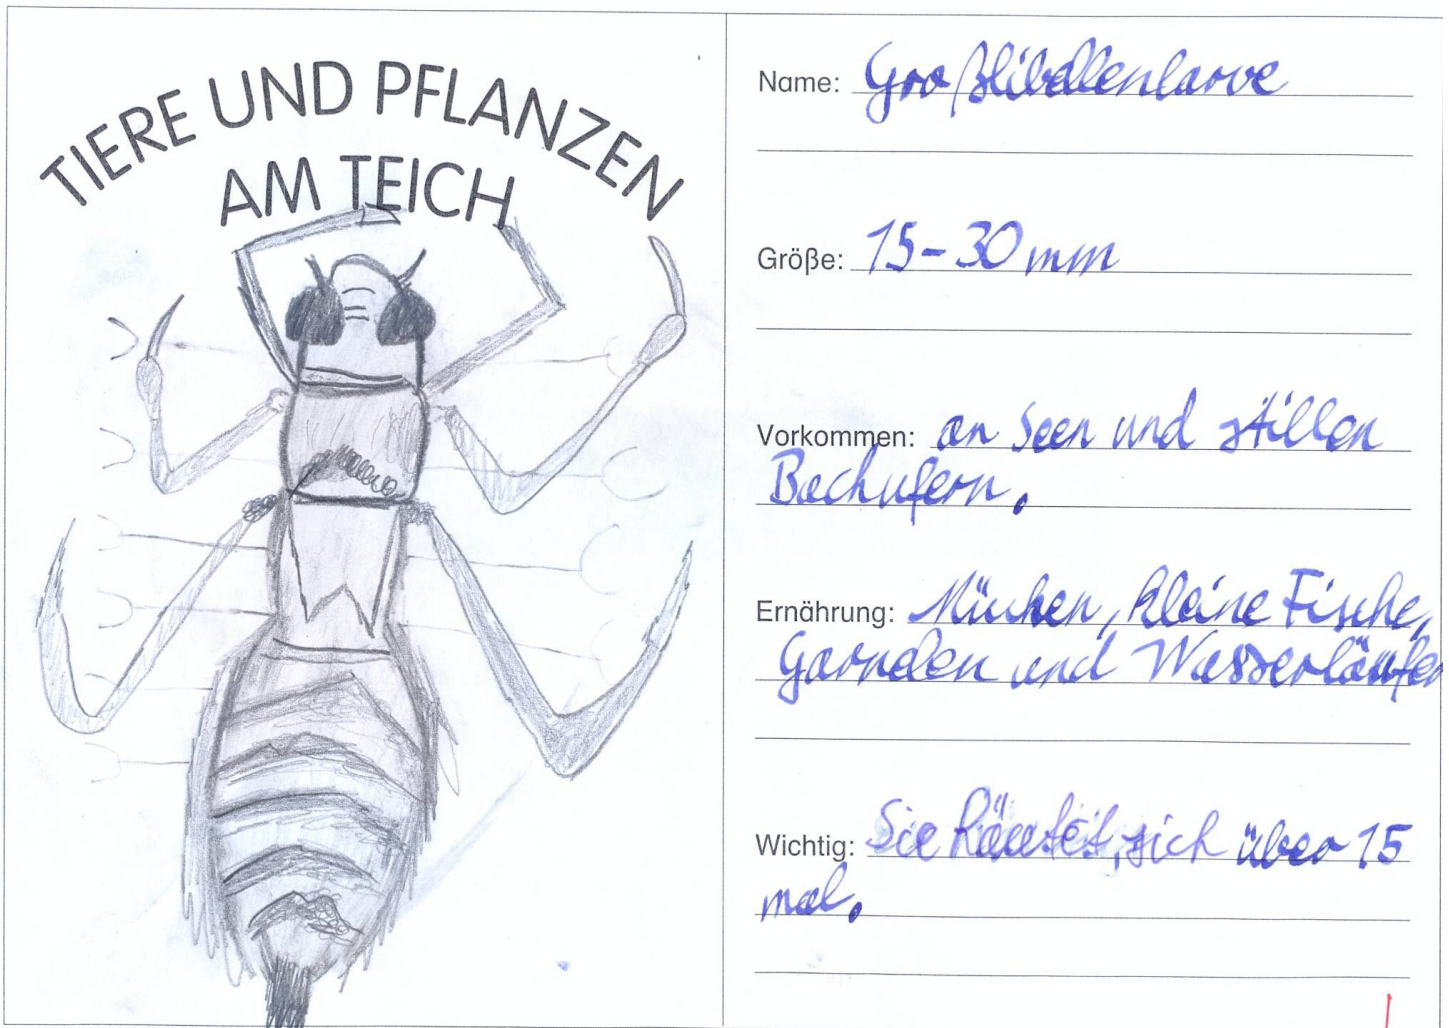 TIERE UND PFLANZEN
AM TEICH
Name: Großlibellenlarve
Größe: 15-30 mm
Vorkommen: an Seen und stillen
Bachufern.
Ernährung: Mücken, kleine Fische,
Garnelen und Wasserläufer
Wichtig: Sie häutet sich über 15
mal.